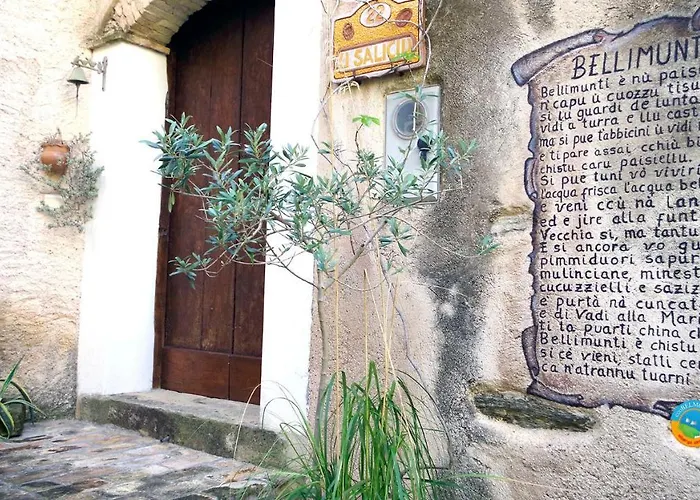 22
I SALICIU
BELLIMUNTI
Bellimunti è nù
n'capu ù cuozzu
si lu guardi de lunta
vidi a turra e llu cast
ma si pue t'abbicini ù vidi
e ti pare assai cchiù bi
chistu caru paisiellu.
Si pue tuni vò viviri
l'acqua frisca l'acqua be
e veni ccù nà lan
ed e jire alla funt
Vecchia si, ma tantu
E si ancora vo gu
pimmiduori sapur
mulinciane, minest
cucuzzielli e saziz
e' purtà nà cuncat
e di Vadi alla Mari
ti ta puarti china ch
Bellimunti è chistu
si cé vieni, statti cer
ca n'atrannu tuarni